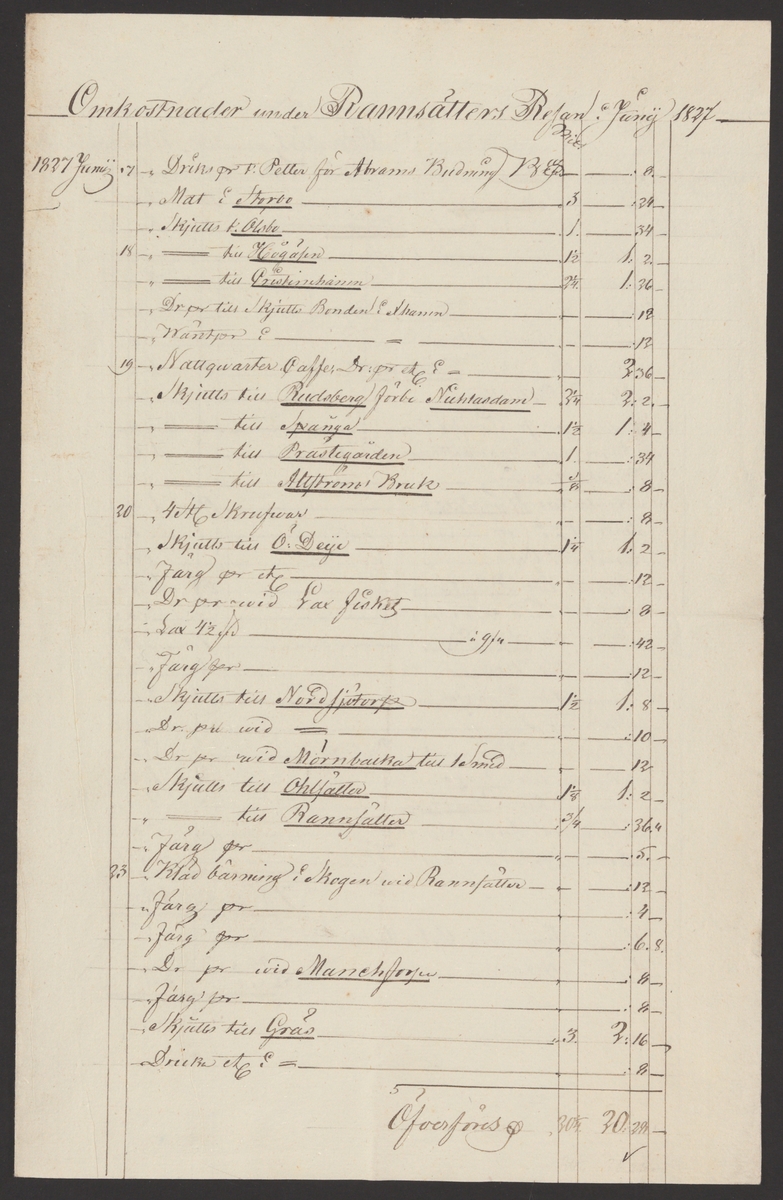 Omkostnader under Rannsätters Resan i Junij 1827
Mil
1827 Junij 17 " Drikspr t. Petter för Abrams Budning — : 8.
" Mat i Storbo — 3 — : 24
" Skjutts t. Ölsbo — 1. — : 34
18 " = till Högåsen — 1½ 1: 2.
" = till Cristinehamn — 2¼ 1: 36
" Dr. pr till Skjutts Bonden i Xhamn — " — : 12
" Wäntpr i = — " — : 12
19 " Nattqwarter Caffe, Dr: pr etc i = — " 2: 36
" Skjutts till Rudsberg förbi Nichlasdam — 2¼ 2: 2.
" = till Spånga — 1½ 1: 4
" = till Prästegården — 1. — : 34
" = till Altströms Bruk — : 8
20 " 4 st Skrufwar — " — : 8
" Skjutts till Ö: Deije — 1¼ 1: 2
" Färg pr etc — " — : 12
" Dr pr wid Lax fisket — " — : 8
" Lax 4½ — " — : 42
" Färg pr — " — : 12
" Skjutts till Nordsjötorp — 1½ 1: 8
" Dr. pr wid = — " — : 10
" Dr pr wid Mörnbacka till 1 Smed — " — : 12
" Skjutts till Ohlsätter — 1⅛ 1: 2
" = till Rannsätter — 3/4 — : 36.
" Färg pr — " — : 5.
23 " Kläd bärning i Skogen wid Rannsätter — " — : 12
" Färg pr — " — : 4
" Färg pr — " — : 6. 8.
" Dr pr wid — " — : 8
" Färg pr — " — : 8
" Skjutts till Gräs — 3. 2: 16
" Dricka etc i = — " — : 8
Öfverföres 20: 28